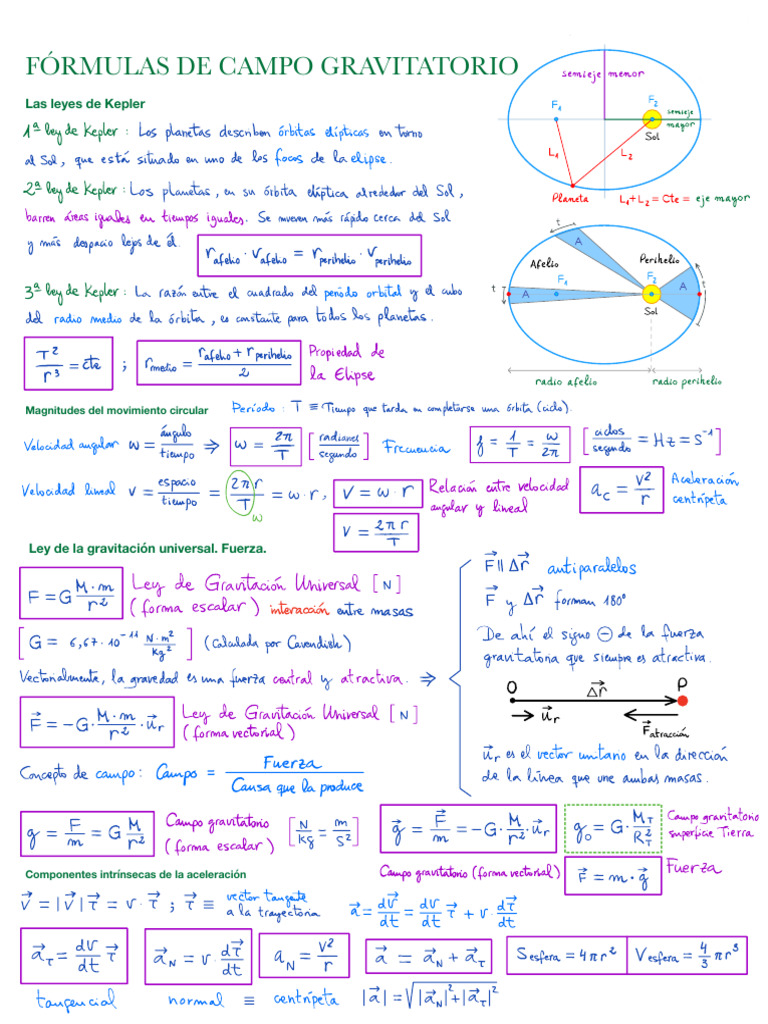 FÓRMULAS DE CAMPO GRAVITATORIO
semieje menor
F₁
F₂
semieje mayor
Sol
L₁
L₂
Planeta
L₁+L₂ = Cte = eje mayor
Las leyes de Kepler
1ª ley de Kepler : Los planetas describen órbitas elípticas en torno
al Sol, que está situado en uno de los focos de la elipse.
2ª ley de Kepler : Los planetas, en su órbita elíptica alrededor del Sol,
barren áreas iguales en tiempos iguales. Se mueven más rápido cerca del Sol
y más despacio lejos de él.
r afelio · v afelio = r perihelio · v perihelio
t
A
Afelio
Perihelio
F₁
F₂
t
A
A
t
Sol
radio afelio
radio perihelio
3ª ley de Kepler : La razón entre el cuadrado del período orbital y el cubo
del radio medio de la órbita, es constante para todos los planetas.
T²/r³ = cte ; r medio = (r afelio + r perihelio)/2 Propiedad de
la Elipse
Magnitudes del movimiento circular
Período : T ≡ Tiempo que tarda en completarse una órbita (ciclo).
Velocidad angular w = ángulo/tiempo ⇒ w = 2π/T [radianes/segundo] Frecuencia f = 1/T = w/2π [ciclos/segundo = Hz = S⁻¹]
Velocidad lineal v = espacio/tiempo = 2πr/T = w·r, V = w·r Relación entre velocidad
angular y lineal
w
v = 2πr/T
a_c = v²/r Aceleración
centrípeta
Ley de la gravitación universal. Fuerza.
F = G M·m/r² Ley de Gravitación Universal [N]
(forma escalar) interacción entre masas
[G = 6,67·10⁻¹¹ N·m²/kg²] (Calculada por Cavendish)
Vectorialmente, la gravedad es una fuerza central y atractiva. ⇒
F⃗ = −G· M·m/r² ·u⃗r Ley de Gravitación Universal [N]
(forma vectorial)
F⃗ ∥ Δr⃗ antiparalelos
F⃗ y Δr⃗ forman 180º
De ahí el signo ⊖ de la fuerza
gravitatoria que siempre es atractiva.
O
Δr⃗
P
u⃗r
F⃗ atracción
u⃗r es el vector unitario en la dirección
de la línea que une ambas masas.
Concepto de campo: Campo = Fuerza/Causa que la produce
g = F/m = G M/r² Campo gravitatorio
(forma escalar) [N/kg = m/s²]
g⃗ = F⃗/m = −G· M/r² ·u⃗r
Campo gravitatorio (forma vectorial)
g₀ = G· M_T/R_T² Campo gravitatorio
superficie Tierra
F⃗ = m·g⃗ Fuerza
Componentes intrínsecas de la aceleración
v⃗ = |v⃗| τ⃗ = v·τ⃗ ; τ⃗ ≡ vector tangente
a la trayectoria
a⃗ = dv⃗/dt = dv/dt τ⃗ + v· dτ⃗/dt
a⃗_τ = dv/dt τ⃗
a⃗_N = v· dτ⃗/dt
a_N = v²/r
a⃗ = a⃗_N + a⃗_τ
S esfera = 4πr²
V esfera = 4/3 πr³
tangencial
normal ≡ centrípeta
|a⃗| = √(|a⃗_N|² + |a⃗_τ|²)